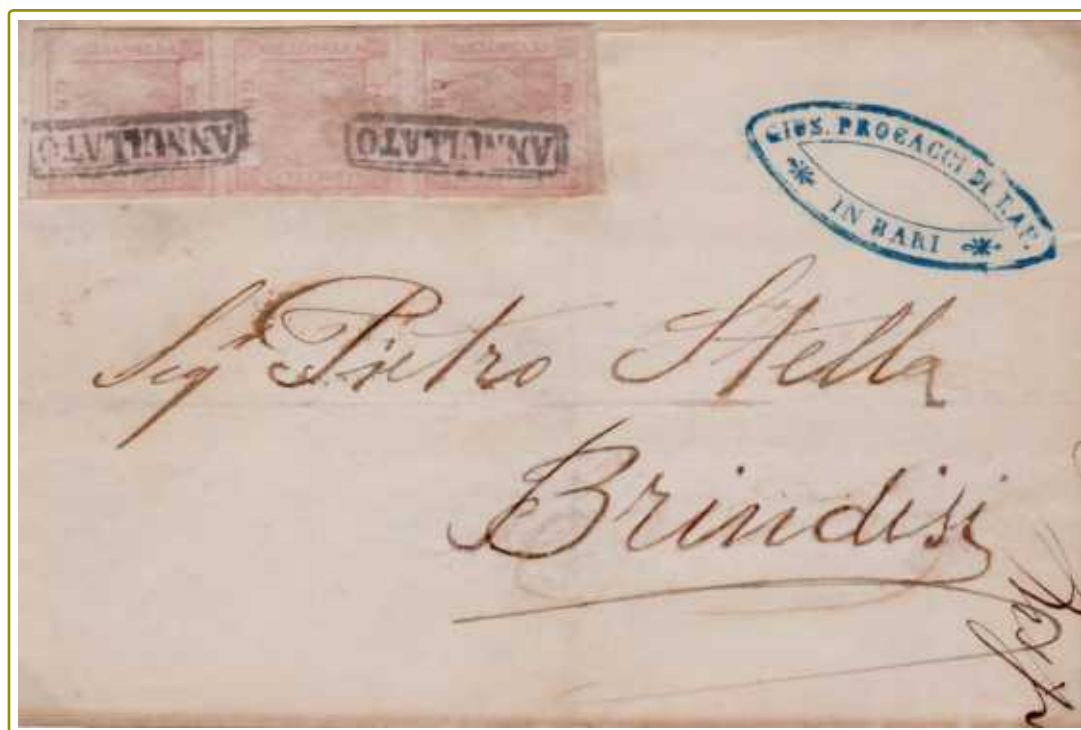 ANNULLATO
ANNULLATO
GIUS. PROCACCI DI RAF.
IN BARI
Sigr Pietro Stella
Brindisi